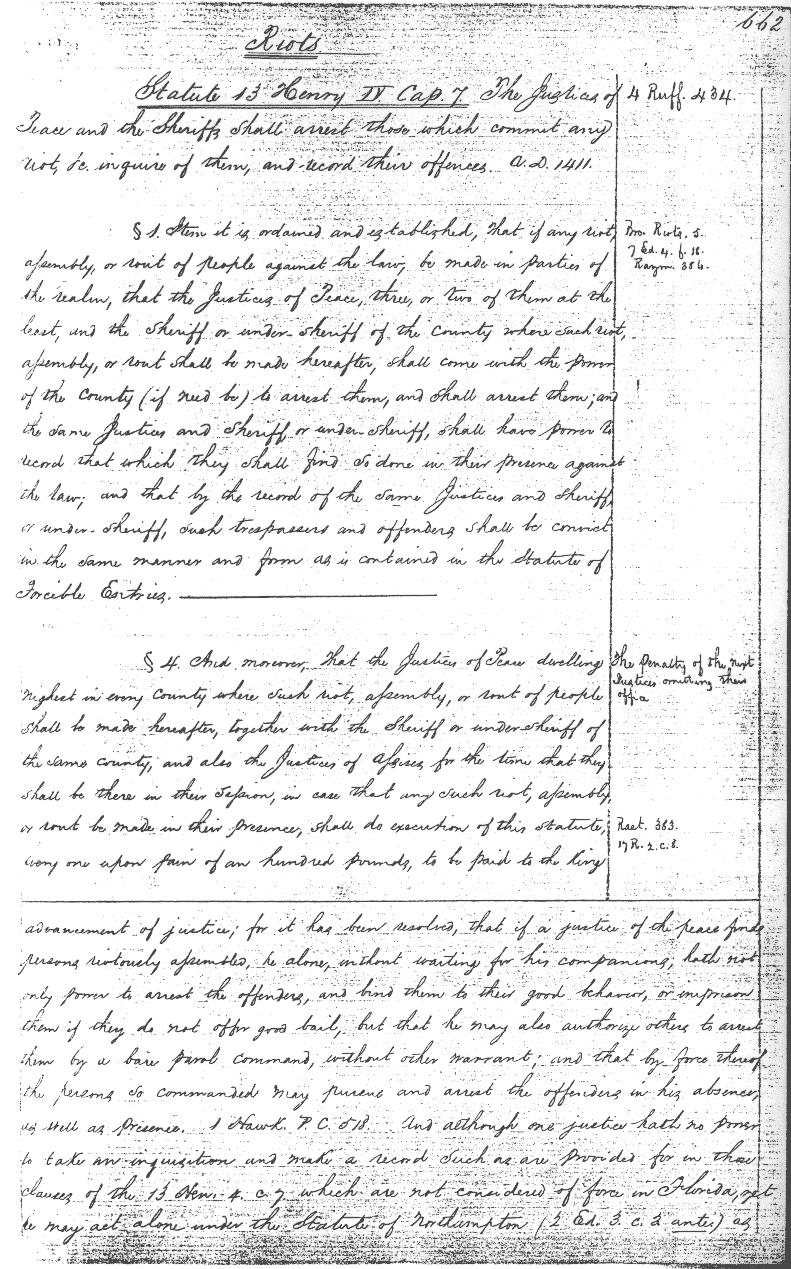 662
Riots
Statute 13 Henry IV Cap. 7 The Justices of
4 Ruff. 434.
Peace and the Sheriffs shall arrest those which commit any
riot, &c. inquire of them, and record their offences. A.D. 1411.
§ 1. Item it is ordained and established, that if any riot,
assembly, or rout of people against the law, be made in parties of
the realm, that the Justices of Peace, three, or two of them at the
least, and the Sheriff or under-Sheriff of the County where such riot,
assembly, or rout shall be made hereafter, shall come with the power
of the County (if need be) to arrest them, and shall arrest them; and
the same Justices and Sheriff or under-Sheriff, shall have power to
record that which they shall find so done in their presence against
the law; and that by the record of the same Justices and Sheriff,
or under-Sheriff, such trespassers and offenders shall be convict
in the same manner and form as is contained in the Statute of
Forcible Entries.
Bro. Riots. 5.
7 Ed. 4. f. 18.
Raym. 386.
§ 4. And moreover, that the Justices of Peace dwelling
nighest in every County where such riot, assembly, or rout of people
shall be made hereafter, together with the Sheriff or under-Sheriff of
the same county, and also the Justices of Assises for the time that they
shall be there in their Session, in case that any such riot, assembly,
or rout be made in their presence, shall do execution of this Statute,
every one upon pain of an hundred pounds, to be paid to the King
The Penalty of the next
Justices omitting their
office
Rast. 383.
17 R. 2. c. 8.
advancement of justice; for it has been resolved, that if a justice of the peace finds
persons riotously assembled, he alone, without waiting for his companions, hath not
only power to arrest the offenders, and bind them to their good behavior, or imprison
them if they do not offer good bail, but that he may also authorize others to arrest
them by a bare parol command, without other warrant; and that by force thereof
the persons so commanded may pursue and arrest the offenders in his absence,
as well as presence. 1 Hawk. P.C. 518. And although one justice hath no power
to take an inquisition and make a record such as are provided for in those
clauses of the 13 Hen. 4. c. 7 which are not considered of force in Florida, yet
he may act alone under the Statute of Northampton (2 Ed. 3. c. 3 ante.) as